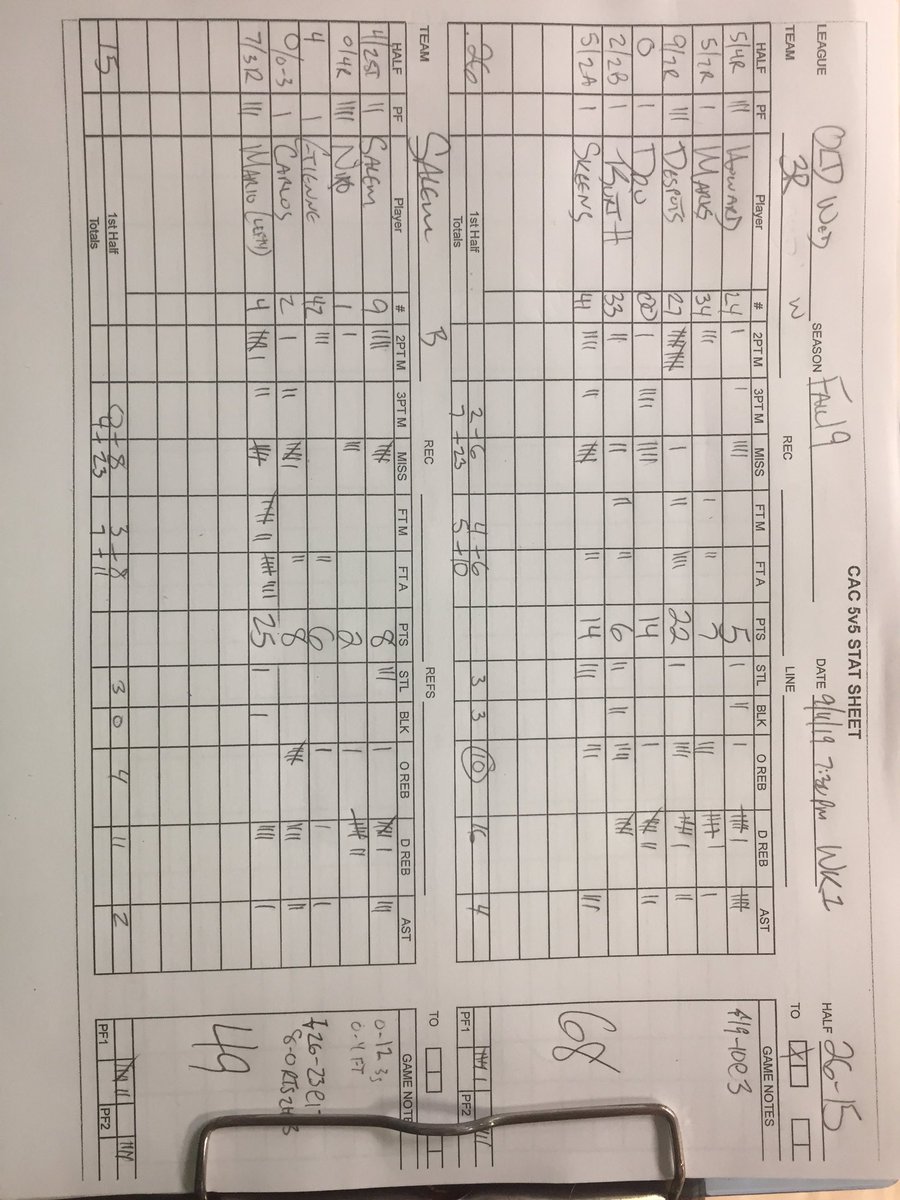 CAC 5v5 STAT SHEET
LEAGUE OLD WED SEASON FALL 19 DATE 9/11/19 7:30pm WK1 HALF 26-15
TEAM 3R W REC LINE TO
HALF PF Player # 2PT M 3PT M MISS FT M FT A PTS STL BLK O REB D REB AST GAME NOTES
5/4R III HOWARD 24 I I IIII 5 I II I IIII I IIII
5/7R I MARKS 34 III I II 7 IIII IIII I I
9/7R III DESPOTS 27 IIII IIII I II IIII 22 I IIII IIII I II
0 I DRU 00 I IIII IIII 14 I IIII II II
2/2B I KURT H 33 II II II II 6 II II IIII IIII
5/2A I SKEENS 41 IIII II IIII II 14 IIII III IIII
26 1st Half Totals 2-6 4+6 3 3 10 16 4 PF1 PF2
7+23 5+10
68
TEAM SALEM B REC REFS TO
HALF PF Player # 2PT M 3PT M MISS FT M FT A PTS STL BLK O REB D REB AST GAME NOTES
4/2ST II SALEM 9 IIII IIII 8 IIII I IIII I III
0/4R IIII NIKO 1 I III 2 I IIII II
4 I ETIENNE 42 III II 6 I I I
0/0-3 I CARLOS 2 I II IIII I II 8 IIII IIII II
7/3R III MARIO 4 IIII I II IIII IIII II IIII IIII 25 I I IIII I
15 1st Half Totals 0+8 3+8 3 0 4 11 2 PF1 PF2
4+23 7+11
0-12 3s
0-4 FT
49